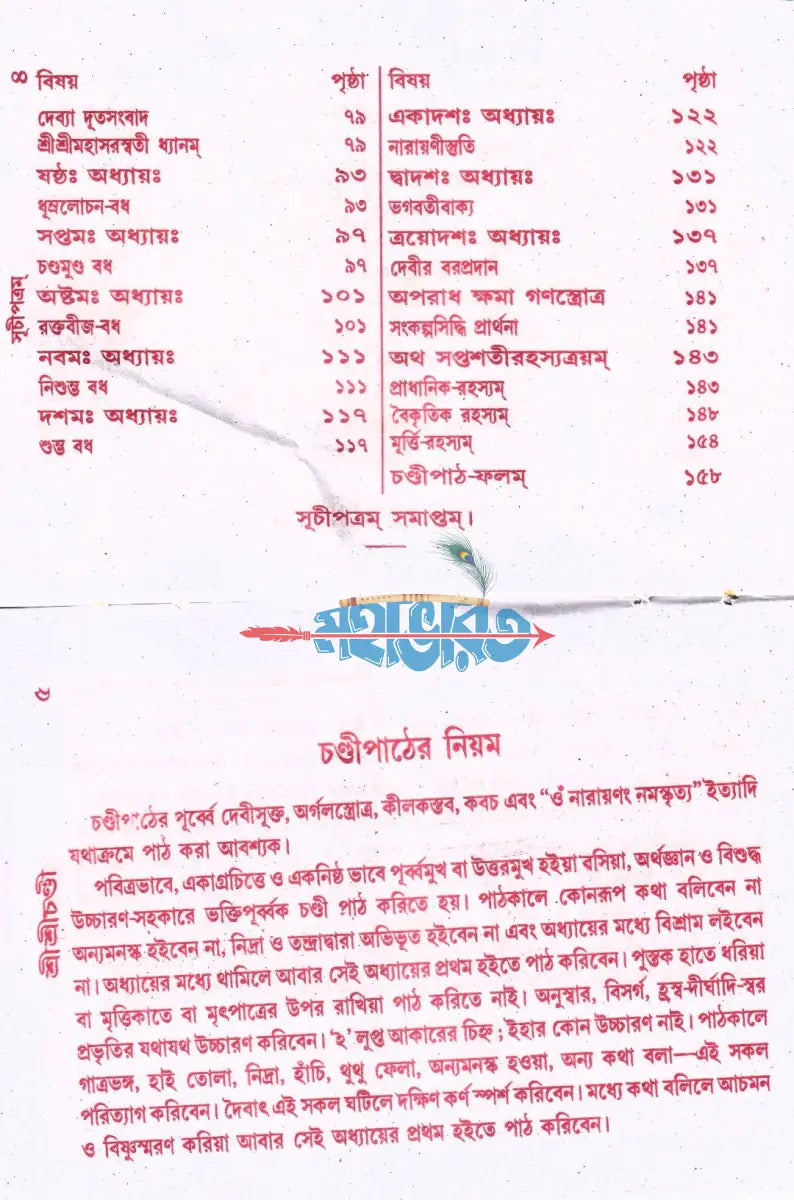 ৪
বিষয় পৃষ্ঠা
দেব্যা দূতসংবাদ ৭৯
শ্রীশ্রীমহাসরস্বতী ধ্যানম্ ৭৯
ষষ্ঠঃ অধ্যায়ঃ ৯৩
ধূম্রলোচন-বধ ৯৩
সপ্তমঃ অধ্যায়ঃ ৯৭
চণ্ডমুণ্ড বধ ৯৭
অষ্টমঃ অধ্যায়ঃ ১০১
রক্তবীজ-বধ ১০১
নবমঃ অধ্যায়ঃ ১১১
নিশুম্ভ বধ ১১১
দশমঃ অধ্যায়ঃ ১১৭
শুম্ভ বধ ১১৭
সূচীপত্রম্
বিষয় পৃষ্ঠা
একাদশঃ অধ্যায়ঃ ১২২
নারায়ণীস্তুতি ১২২
দ্বাদশঃ অধ্যায়ঃ ১৩১
ভগবতীবাক্য ১৩১
ত্রয়োদশঃ অধ্যায়ঃ ১৩৭
দেবীর বরপ্রদান ১৩৭
অপরাধ ক্ষমা গণস্ত্রোত্র ১৪১
সংকল্পসিদ্ধি প্রার্থনা ১৪১
অথ সপ্তশতীরহস্যত্রয়ম্ ১৪৩
প্রাধানিক-রহস্যম্ ১৪৩
বৈকৃতিক রহস্যম্ ১৪৮
মূর্ত্তি-রহস্যম্ ১৫৪
চণ্ডীপাঠ-ফলম্ ১৫৮
সূচীপত্রম্ সমাপ্তম্।
মহাভারত
৫
চণ্ডীপাঠের নিয়ম
শ্রীশ্রীচণ্ডী
চণ্ডীপাঠের পূর্ব্বে দেবীসূক্ত, অর্গলস্ত্রোত্র, কীলকস্তব, কবচ এবং “ওঁ নারায়ণং নমস্কৃত্য” ইত্যাদি
যথাক্রমে পাঠ করা আবশ্যক।
পবিত্রভাবে, একাগ্রচিত্তে ও একনিষ্ঠ ভাবে পূর্ব্বমুখ বা উত্তরমুখ হইয়া বসিয়া, অর্থজ্ঞান ও বিশুদ্ধ
উচ্চারণ-সহকারে ভক্তিপূর্ব্বক চণ্ডী পাঠ করিতে হয়। পাঠকালে কোনরূপ কথা বলিবেন না
অন্যমনস্ক হইবেন না, নিদ্রা ও তন্দ্রাদ্বারা অভিভূত হইবেন না এবং অধ্যায়ের মধ্যে বিশ্রাম লইবেন
না। অধ্যায়ের মধ্যে থামিলে আবার সেই অধ্যায়ের প্রথম হইতে পাঠ করিবেন। পুস্তক হাতে ধরিয়া
বা মৃত্তিকাতে বা মৃৎপাত্রের উপর রাখিয়া পাঠ করিতে নাই। অনুস্বার, বিসর্গ, হ্রস্ব-দীর্ঘাদি-স্বর
প্রভৃতির যথাযথ উচ্চারণ করিবেন। ‘ঽ’ লুপ্ত আকারের চিহ্ন; ইহার কোন উচ্চারণ নাই। পাঠকালে
গাত্রভঙ্গ, হাই তোলা, নিদ্রা, হাঁচি, থুথু ফেলা, অন্যমনস্ক হওয়া, অন্য কথা বলা—এই সকল
পরিত্যাগ করিবেন। দৈবাৎ এই সকল ঘটিলে দক্ষিণ কর্ণ স্পর্শ করিবেন। মধ্যে কথা বলিলে আচমন
ও বিষ্ণুস্মরণ করিয়া আবার সেই অধ্যায়ের প্রথম হইতে পাঠ করিবেন।